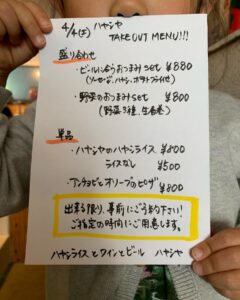 4/4(土) ハヤシヤ
TAKE OUT MENU!!!
盛り合わせ
・ビールに合うおつまみset ¥880
(ソーセージ、ハム、ポテトフライなど)
・野菜のおつまみset ¥800
(野菜3種、生春巻)
単品
・ハヤシヤのハヤシライス ¥800
ライスなし ¥500
・アンチョビとオリーブのピザ ¥800
出来る限り、事前にご予約下さい!
ご指定の時間にご用意します。
ハヤシライスとワインとビール ハヤシヤ